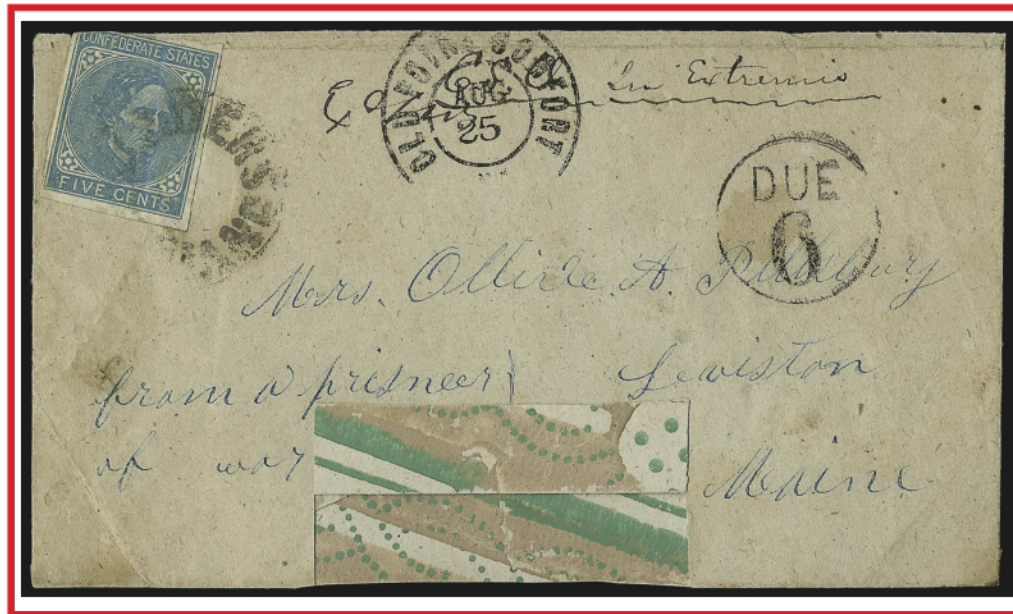 CONFEDERATE STATES
FIVE CENTS
OLD POINT COMFORT
AUG
25
In Extremis
DUE
6
Mrs. Ollive A. Pillsbury
from a prisneer
of war
Lewiston
Maine